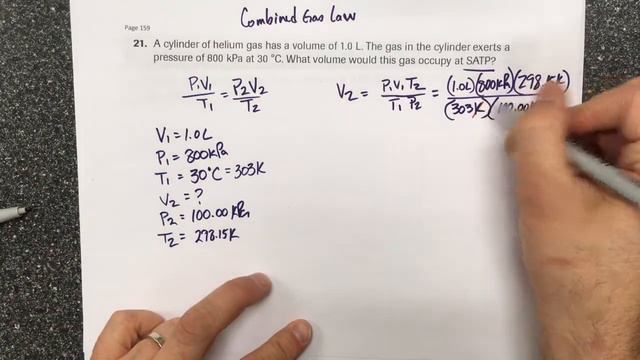 Combined Gas Law
Page 159
21. A cylinder of helium gas has a volume of 1.0 L. The gas in the cylinder exerts a
pressure of 800 kPa at 30 °C. What volume would this gas occupy at SATP?
P₁V₁ / T₁ = P₂V₂ / T₂
V₂ = P₁V₁T₂ / T₁P₂ = (1.0L)(800kPa)(298.15K) / (303K)(100.00
V₁ = 1.0L
P₁ = 800kPa
T₁ = 30°C = 303K
V₂ = ?
P₂ = 100.00 kPa
T₂ = 298.15K